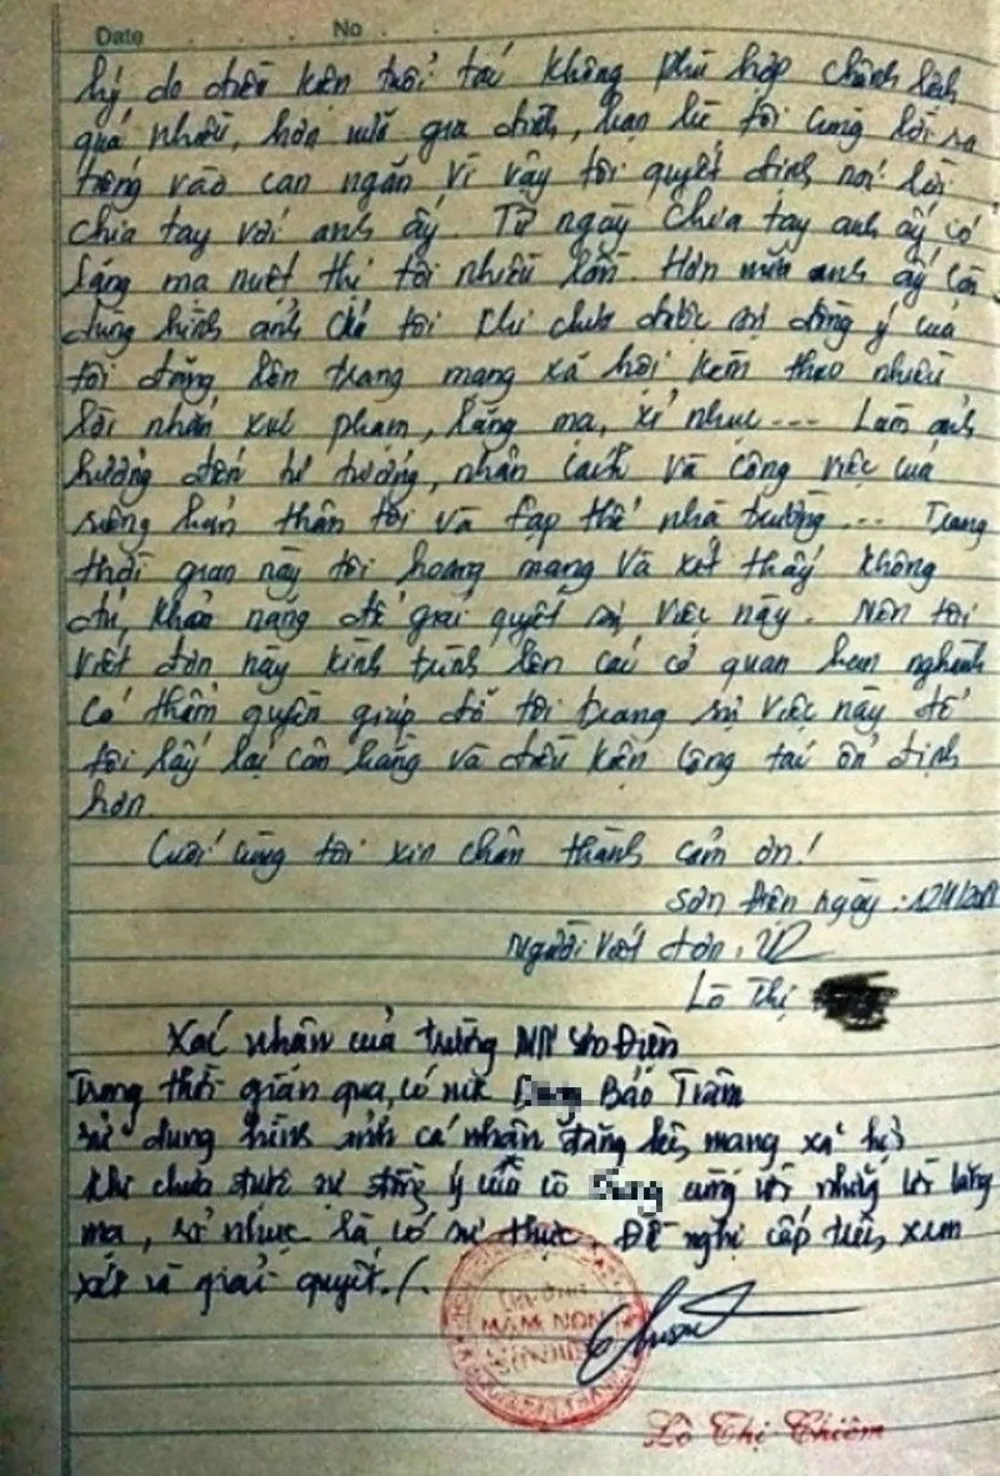 Date . . . . No . .
lý do điều kiện tuổi tác không phù hợp chênh lệch
quá nhiều, hơn nữa gia đình, bạn bè tôi cũng lời ra
tiếng vào can ngăn vì vậy tôi quyết định nói lời
chia tay với anh ấy. Từ ngày chia tay anh ấy có
lăng mạ nuết thị tôi nhiều lần. Hơn nữa anh ấy còn
dùng hình ảnh của tôi khi chưa được sự đồng ý của
tôi đăng lên trang mạng xã hội kèm theo nhiều
lời nhắn xúc phạm, lăng mạ, xỉ nhục --- Làm ảnh
hưởng đến tư tưởng, nhân cách và công việc của
riêng bản thân tôi và tập thể nhà trường --- Trong
thời gian này tôi hoang mang và xét thấy không
đủ khả năng để giải quyết sự việc này. Nên tôi
viết đơn này kính trình lên các cơ quan ban nghành
có thẩm quyền giúp đỡ tôi trong sự việc này để
tôi lấy lại cân bằng và điều kiện công tác ổn định
hơn.
Cuối cùng tôi xin chân thành cảm ơn!
Sơn Điện ngày: 12/4/201
Người viết đơn.
Lò Thị
Xác nhận của trường MN Sơn Điện
Trong thời gian qua, có nick Bảo Trâm
sử dụng hình ảnh cá nhân đăng lên mạng xã hội
khi chưa được sự đồng ý của cô Dung cùng với những lời lăng
mạ, sỉ nhục là có sự thực. Đề nghị cấp trên xem
xét và giải quyết./.
TRƯỜNG
MẦM NON
SƠN ĐIỆN
Lò Thị Chiêm